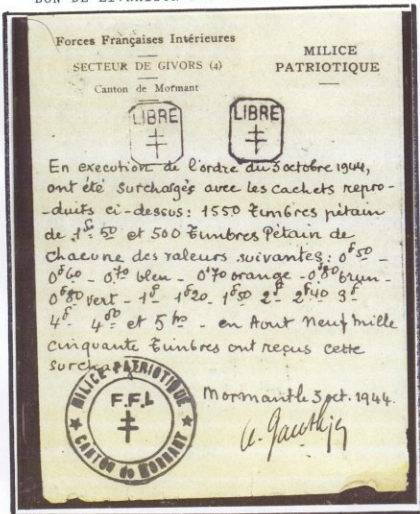 BON DE LIVRAISON
Forces Françaises Intérieures
SECTEUR DE GIVORS (4)
Canton de Mormant
MILICE
PATRIOTIQUE
LIBRE
LIBRE
En execution de l'ordre du 3 octobre 1944,
ont été surchargés avec les cachets repro-
-duits ci-dessus : 1550 timbres pétain
de 1f 50 et 500 timbres Pétain de
chacune des valeurs suivantes : 0f50 -
0f60 - 0f70 bleu - 0f70 orange - 0f80 brun -
0f80 vert - 1f - 1f20 - 1f50 2f 2f40 3f
4f - 4f50 et 5f - en tout Neuf mille
cinquante timbres ont reçus cette
surcharge
MILICE PATRIOTIQUE
F.F.I.
CANTON de MORNANT
Mormant le 3 oct. 1944.